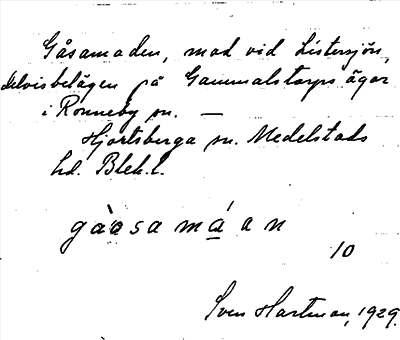 Gåsamaden, mad vid Listersjön,
delvis belägen på Gammalstorps ägor
i Ronneby sn. —
Hjortsberga sn. Medelstads
hd. Blek.l.
gà̀osa má̲an
10
Sven Hartman, 1929.